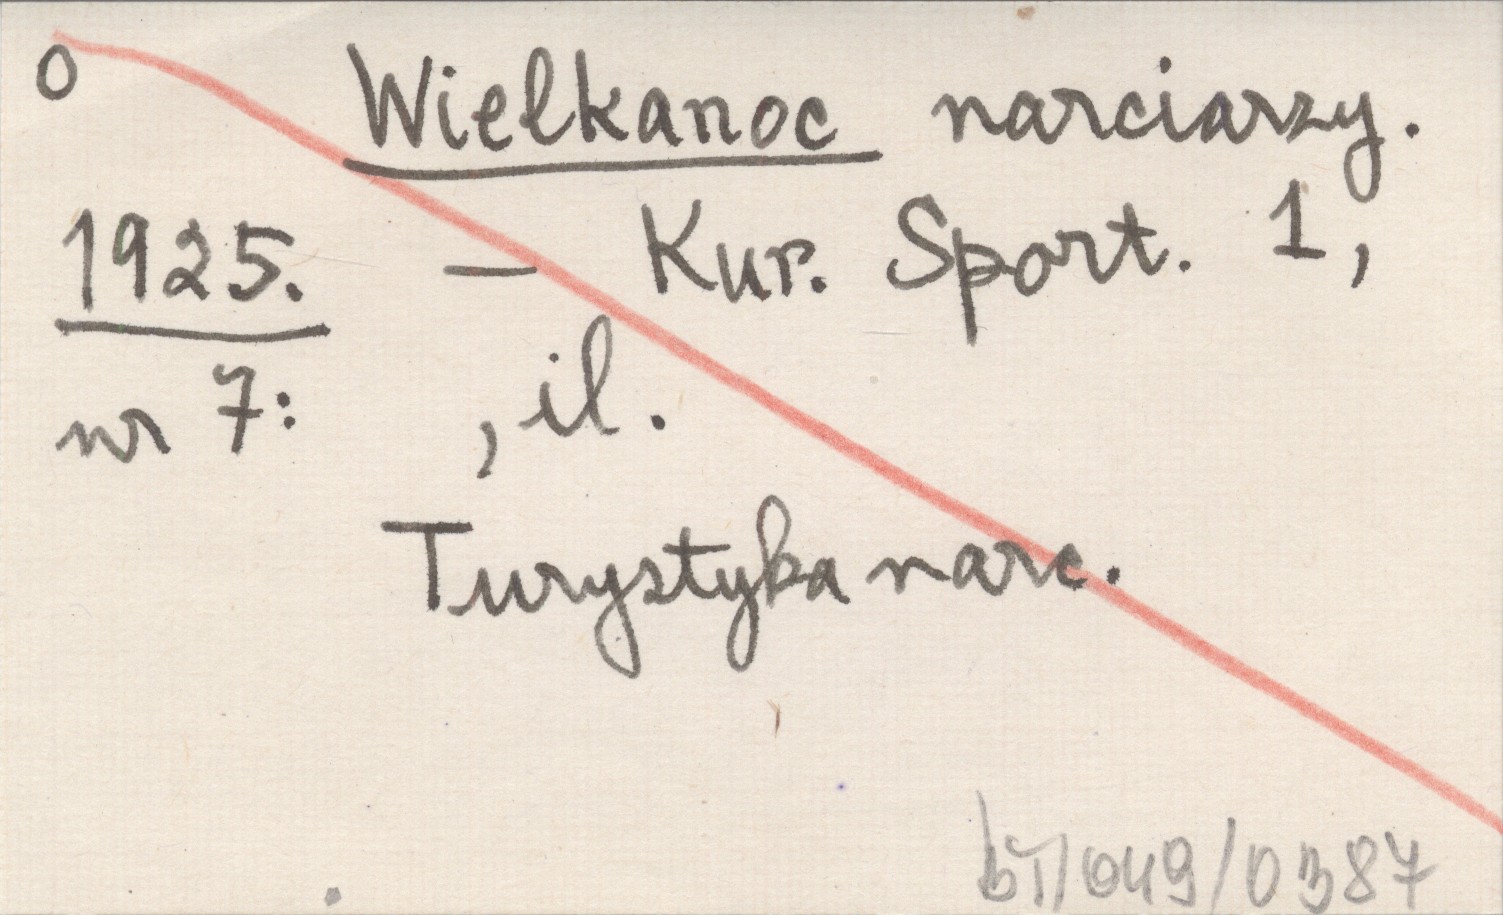 0
Wielkanoc narciarzy.
1925. – Kur. Sport. 1,
nr 7: , il.
Turystyka narc.
bT/049/0387